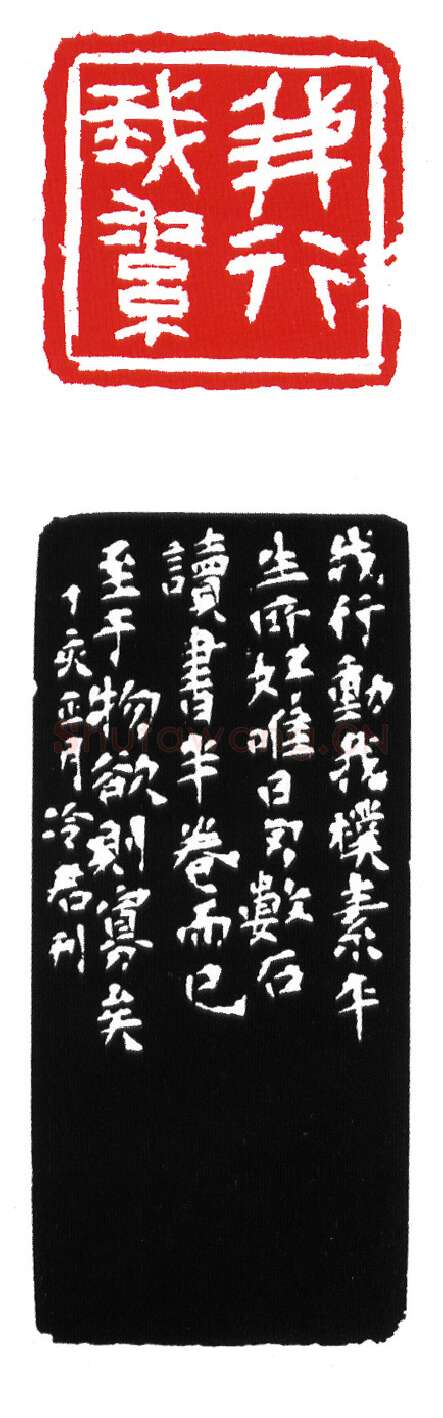 我行
我素
我行動我樸素平
生所好唯日數石
讀書半卷而已
至于物欲則寡矣
丁亥正月冷君刊
Shufawang.CN